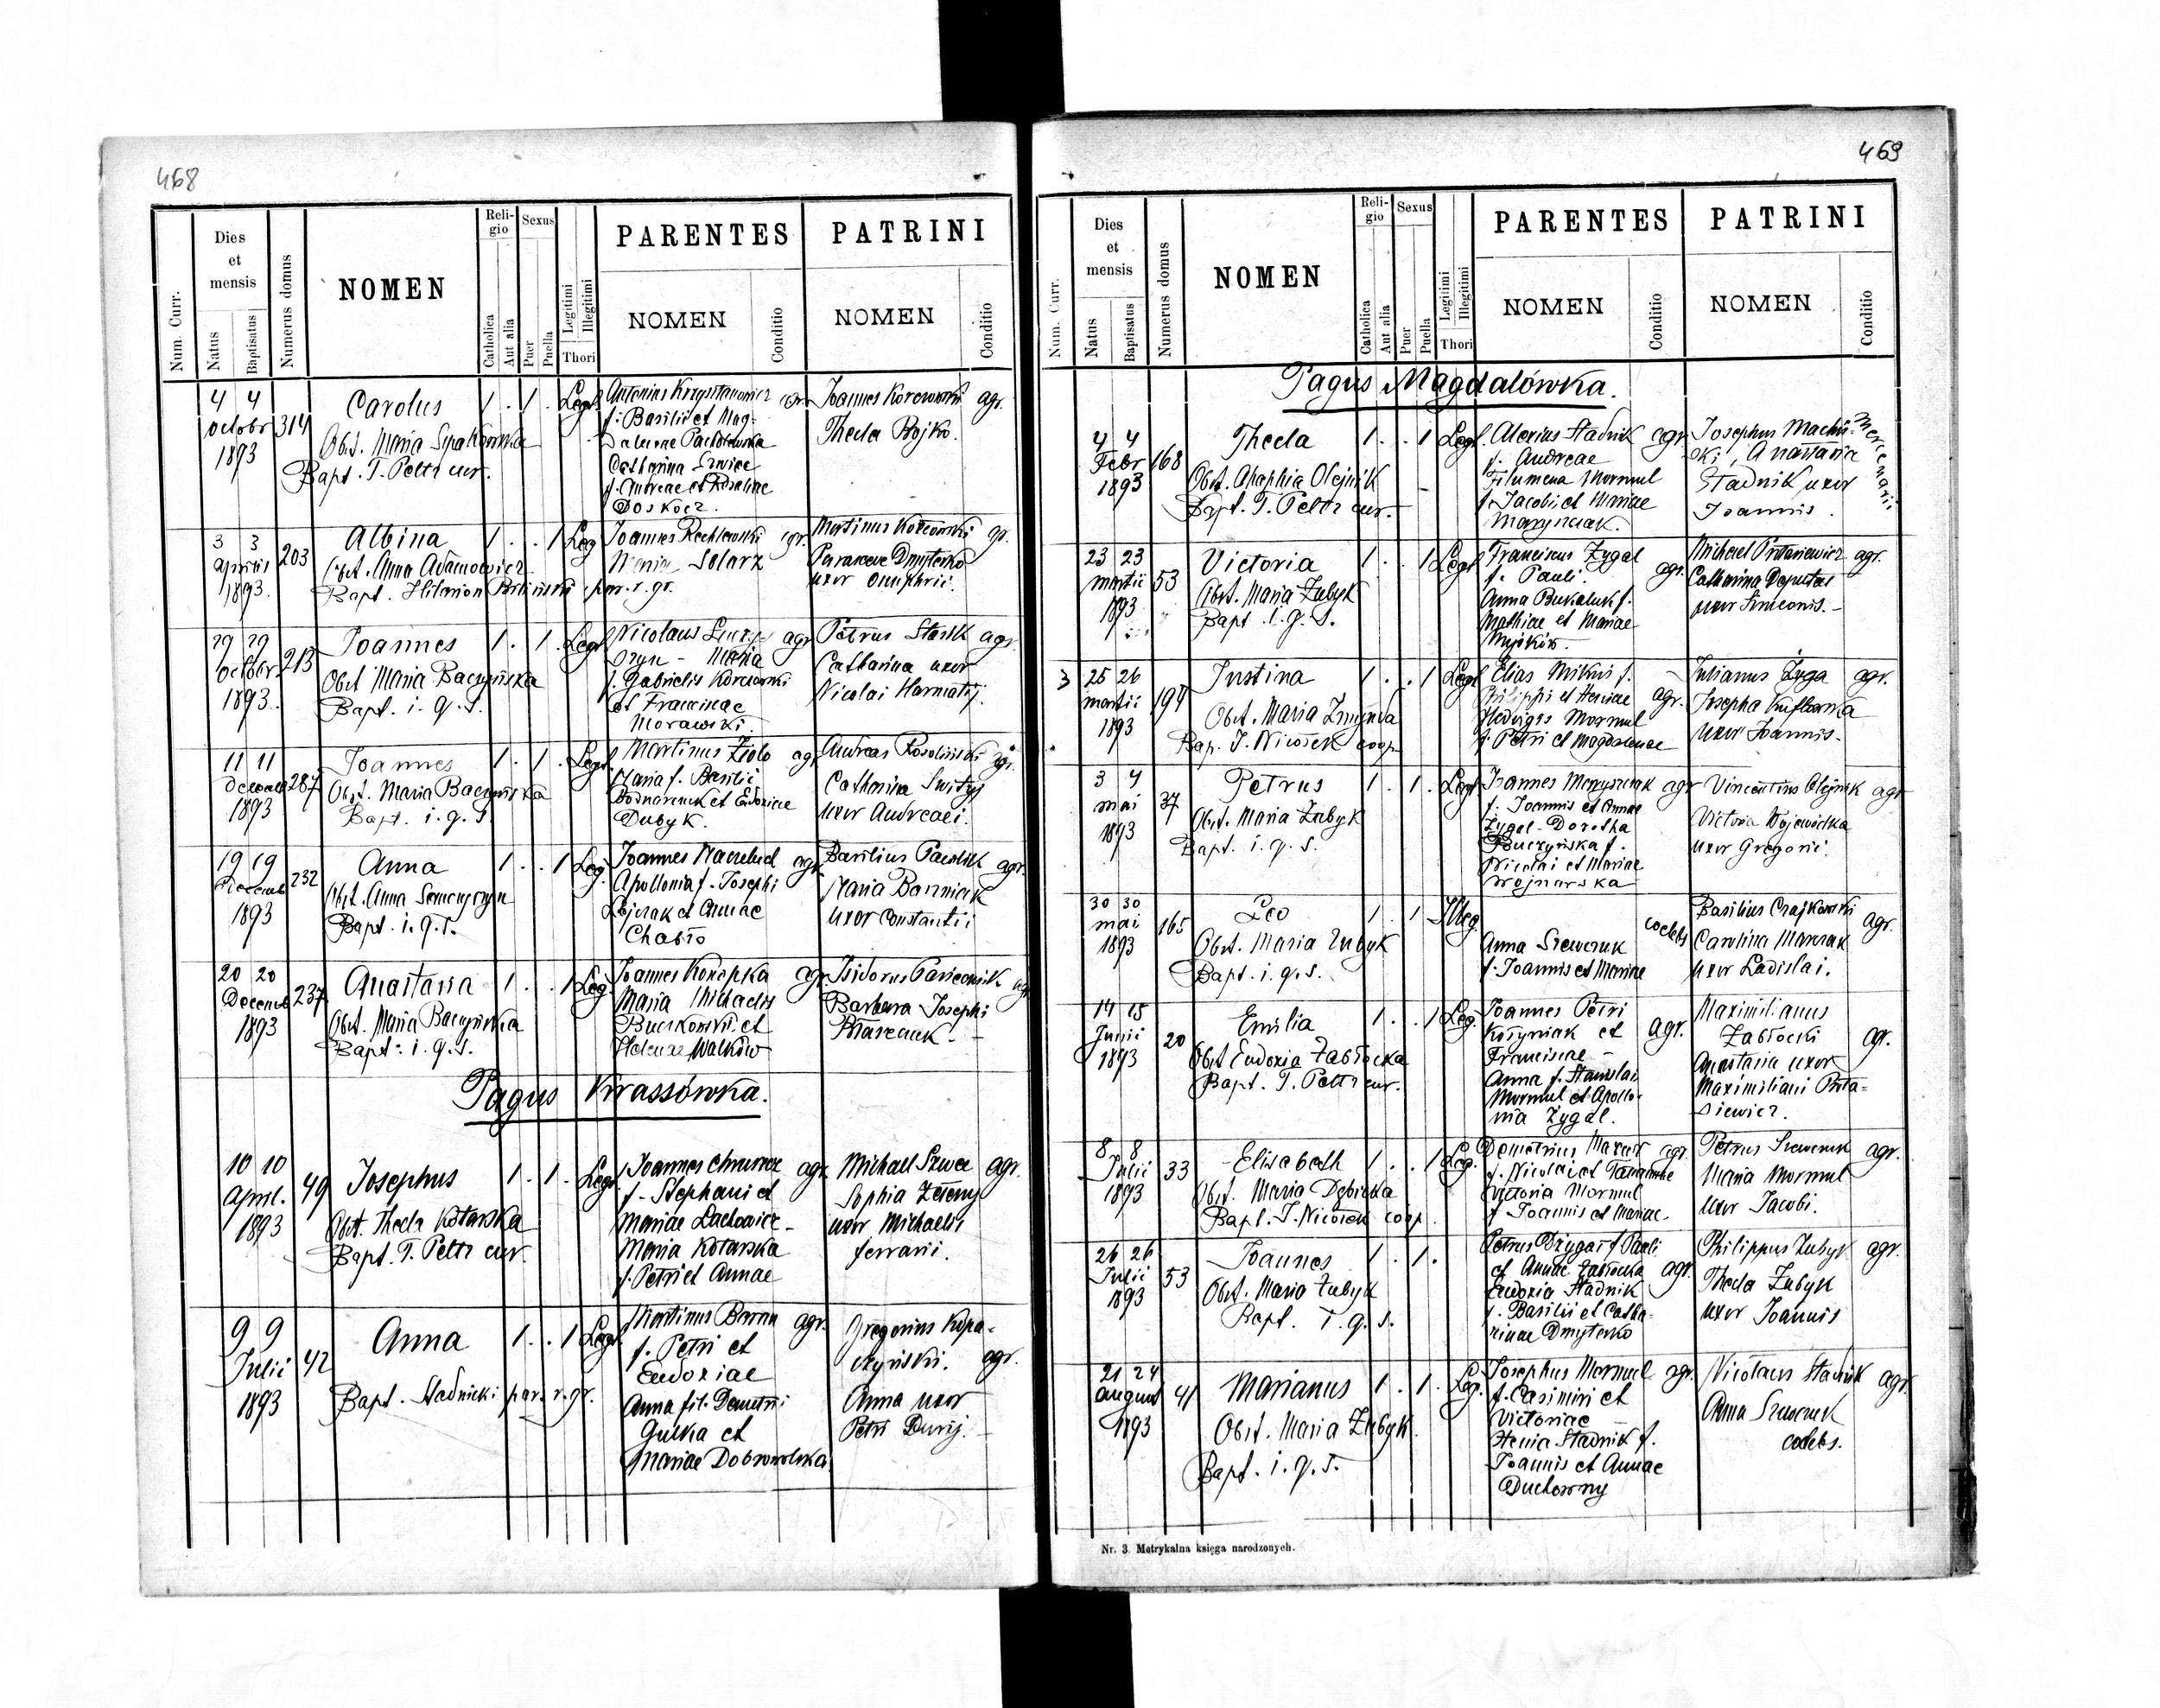 468
Num. Curr.
Dies et mensis
Natus
Baptisatus
Numerus domus
NOMEN
Religio
Catholica
Aut alia
Sexus
Puer
Puella
Legitimi
Illegitimi
Thori
PARENTES
NOMEN
Conditio
PATRINI
NOMEN
Conditio
4 4 octobr 1893
314
Carolus
Obst. Maria
Bapt. T. Peltz cur.
1 . 1 . Leg.
Antonius
f. Basilii et Mag-
dalenae
Catharina
f. Andreae et Rosaliae
Doskocz.
Joannes Korczowski agr.
Thecla Bojko.
3 3 Aprilis 1893.
203
Albina
Obst. Anna Adamowicz
Bapt. Hilarion par. r. gr.
1 . . 1 Leg
Joannes agr.
Solarz
Martinus gr.
Parasceve Dmyterko
uxor Onuphrii.
29 29 octobr. 1893.
213
Joannes
Obst Maria Baczyńska
Bapt. i. q. s.
1 . 1 . Leg
Nicolaus agr
Maria
f. Gabrielis Korczowski
et Francinae
Morawski.
Petrus agr
Catharina uxor
Nicolai Harmatij.
11 11 Decemb 1893
287
Joannes
Obst. Maria Baczyńska
Bapt. i. q. s.
1 . 1 . Leg.
Martinus Ziolo agr
Maria f. Basilii
Bodnarczuk et Eudoxiae
Dubyk.
Andreas gr.
Catharina
uxor Andreae.
19 19 Decemb 1893
232
Anna
Obst. Anna
Bapt. i. q. s.
1 . . 1 Leg.
Joannes agr
Apollonia f. Josephi
et Annae
Chabło
Basilius agr.
Maria
uxor Constantii
20 20 Decemb 1893
237
Anastasia
Obst. Maria Baczyńska
Bapt. i. q. s.
1 . . 1 Leg
Joannes Konopka agr
Maria Michaelis
et
Helenae Walków
Isidorus agr
Barbara Josephi
Pagus Krassówka.
10 10 April. 1893
49
Josephus
Obst. Thecla Kotarska
Bapt. T. Peltz cur.
1 . 1 . Leg.
Joannes agr.
f. Stephani et
Mariae Lachowicz -
Maria Kotarska
f. Petri et Annae
Michael Szwec agr.
Sophia Zeleny
uxor Michaelis
ferrarii.
9 9 Julii 1893
42
Anna
Bapt. Stadnicki par. r. gr.
1 . . 1 Leg.
Martinus Baran agr.
f. Petri et
Eudoxiae
Anna fil. Demetrii
Gulka et
Mariae Dobrowolska
Gregorius Kopa-
czyński. agr.
Anna uxor
Petri
469
Num. Curr.
Dies et mensis
Natus
Baptisatus
Numerus domus
NOMEN
Religio
Catholica
Aut alia
Sexus
Puer
Puella
Legitimi
Illegitimi
Thori
PARENTES
NOMEN
Conditio
PATRINI
NOMEN
Conditio
Pagus Magdalówka.
4 4 Febr 1893
168
Thecla
Obst. Ahaphia Olejnik
Bapt. T. Peltz cur.
1 . . 1 Leg.
Alexius Stadnik agr
f. Andreae
Filumena Mormul
f. Jacobi et Mariae
Marysznak.
Josephus
Anastasia
Stadnik uxor
Joannis.
mercenarii
23 23 Martii 1893
53
Victoria
Obst. Maria Zubyk
Bapt. i. q. s.
1 . . 1 Leg
Franciscus Zygal
f. Pauli. agr.
Anna f.
Mathiae et Mariae
Michael agr.
Catharina Deputat
uxor Simeonis. -
3
25 26 martii 1893
194
Justina
Obst. Maria
Bap. J. Nicosek coop
1 . . 1 Leg
Elias f.
Philippi et agr.
Hedvigis Mormul
f. Petri et Magdalenae
Julianus Zyga agr.
Josepha
uxor Joannis.
3 4 mai 1893
37
Petrus
Obst. Maria Zubyk
Bapt. i. q. s.
1 . 1 . Leg
Joannes agr
f. Joannis et Annae
Zygal - Dorotha
Buczyńska f.
Nicolai et Mariae
Wojnarska
Vincentius Olejnik agr
Victoria
uxor Gregorii.
30 30 mai 1893
165
Leo
Obst. Maria Zubyk
Bapt. i. q. s.
1 . 1 Illeg
Anna Szewczuk coelebs
f. Joannis et Mariae
Basilius Czajkowski agr.
Carolina
uxor Ladislai.
14 15 Junii 1893
20
Emilia
Obst Eudoxia Zabłocka
Bapt. T. Peltz cur.
1 . . 1 Leg.
Joannes Petri
et agr.
Franciscae -
Anna f. Stanislai
Mormul et Apollo-
nia Zygal.
Maximilianus
Zabłocki gr.
Anastasia uxor
Maximiliani
8 8 Julii 1893
33
Elisabeth
Obst. Maria Dębicka
Bapt. J. Nicosek coop.
1 . . 1 Leg.
Demetrius Mazur agr.
f. Nicolai et
Victoria Mormul
f. Joannis et Mariae
Petrus Szewczuk agr.
Maria Mormul
uxor Jacobi.
26 26 Julii 1893
53
Joannes
Obst. Maria Zubyk
Bapt. i. q. s.
1 . 1 .
Petrus f. Pauli
et Annae Zabłocka agr.
Eudoxia Stadnik
f. Basilii et Catha-
rinae Dmyterko
Philippus Zubyk agr.
Thecla Zubyk
uxor Joannis
21 24 August 1893
41
Marianus
Obst. Maria Zubyk
Bapt. i. q. s.
1 . 1 . Leg.
Josephus Mormul agr.
f. Casimiri et
Victoriae -
Stadnik f.
Joannis et Annae
Duchowny
Nicolaus Stadnik agr.
Anna Szewczuk
coelebs.
Nr. 3. Metrykalna księga narodzonych.